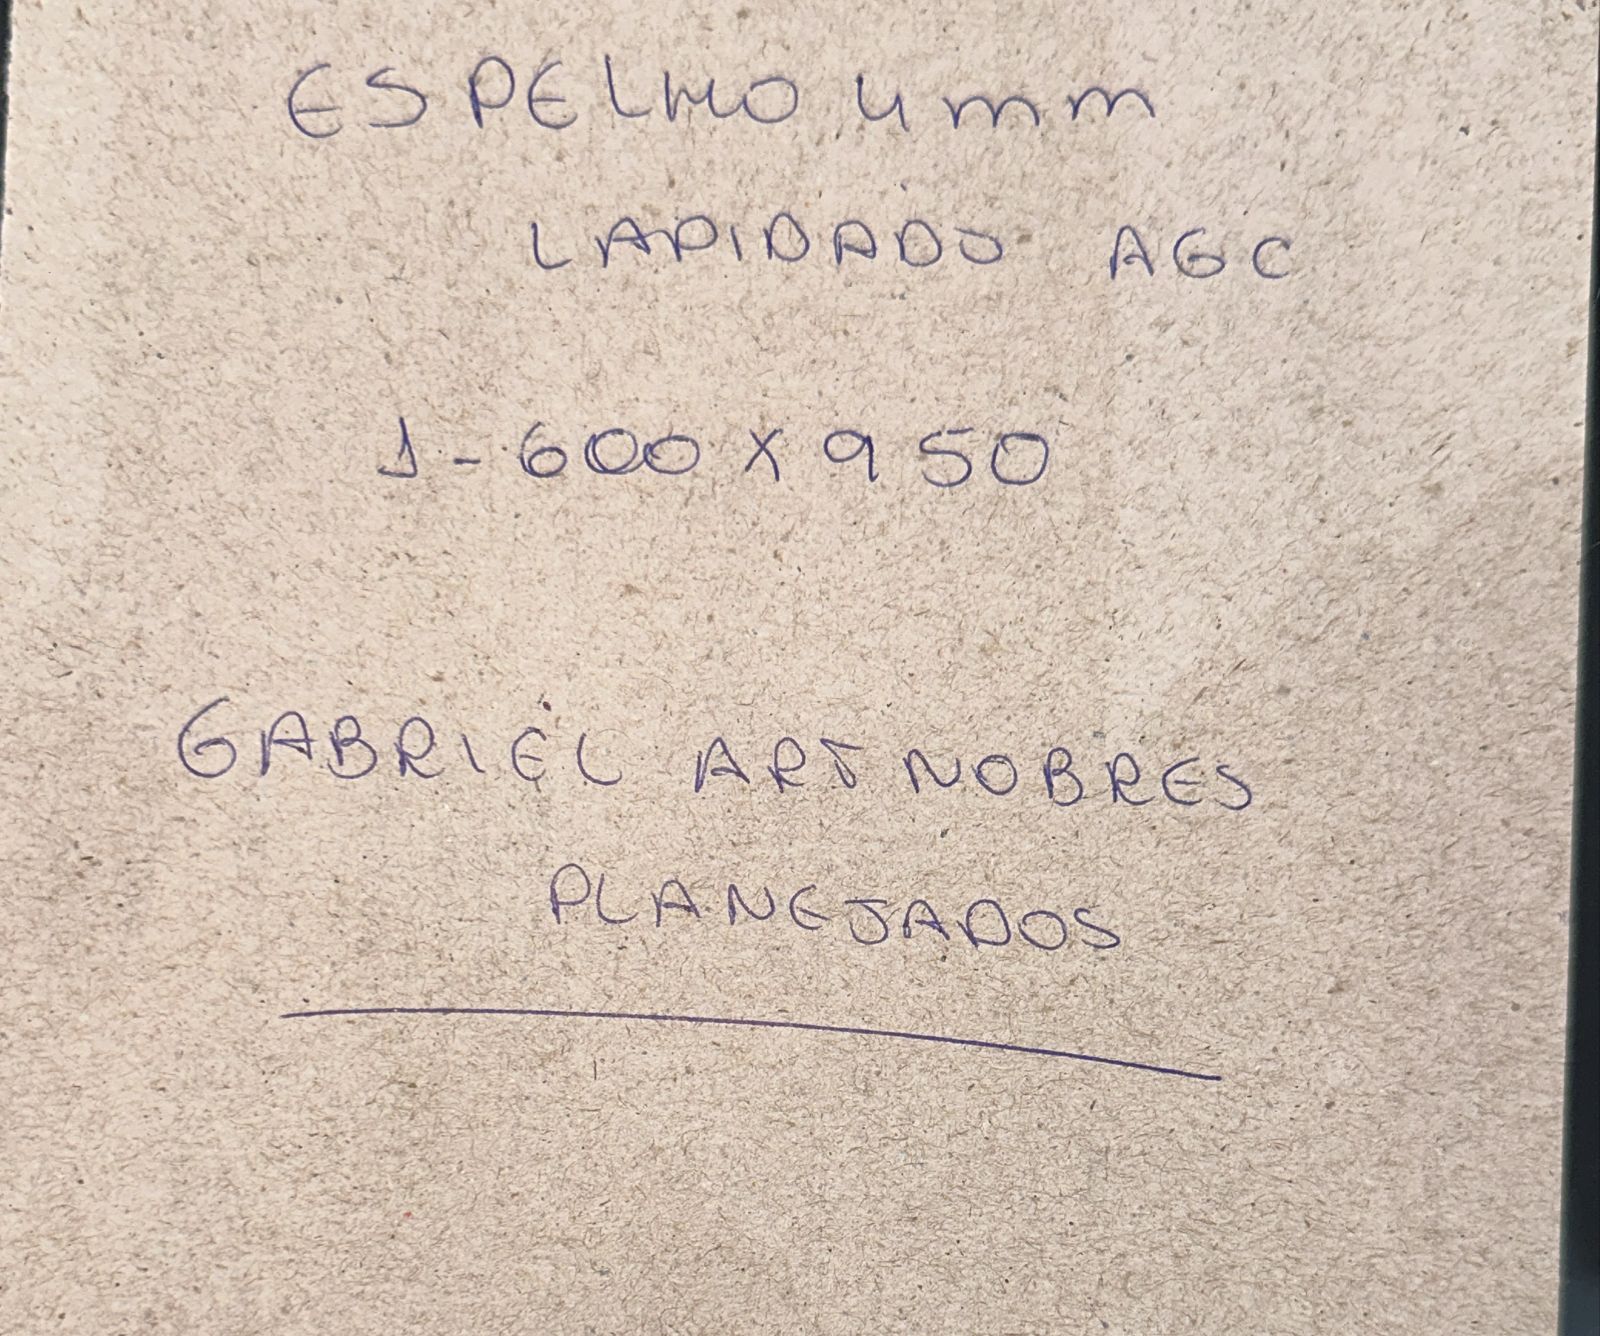 ESPELHO 4mm
LAPIDADO AGC
1-600X950
GABRIEL ART NOBRES
PLANEJADOS